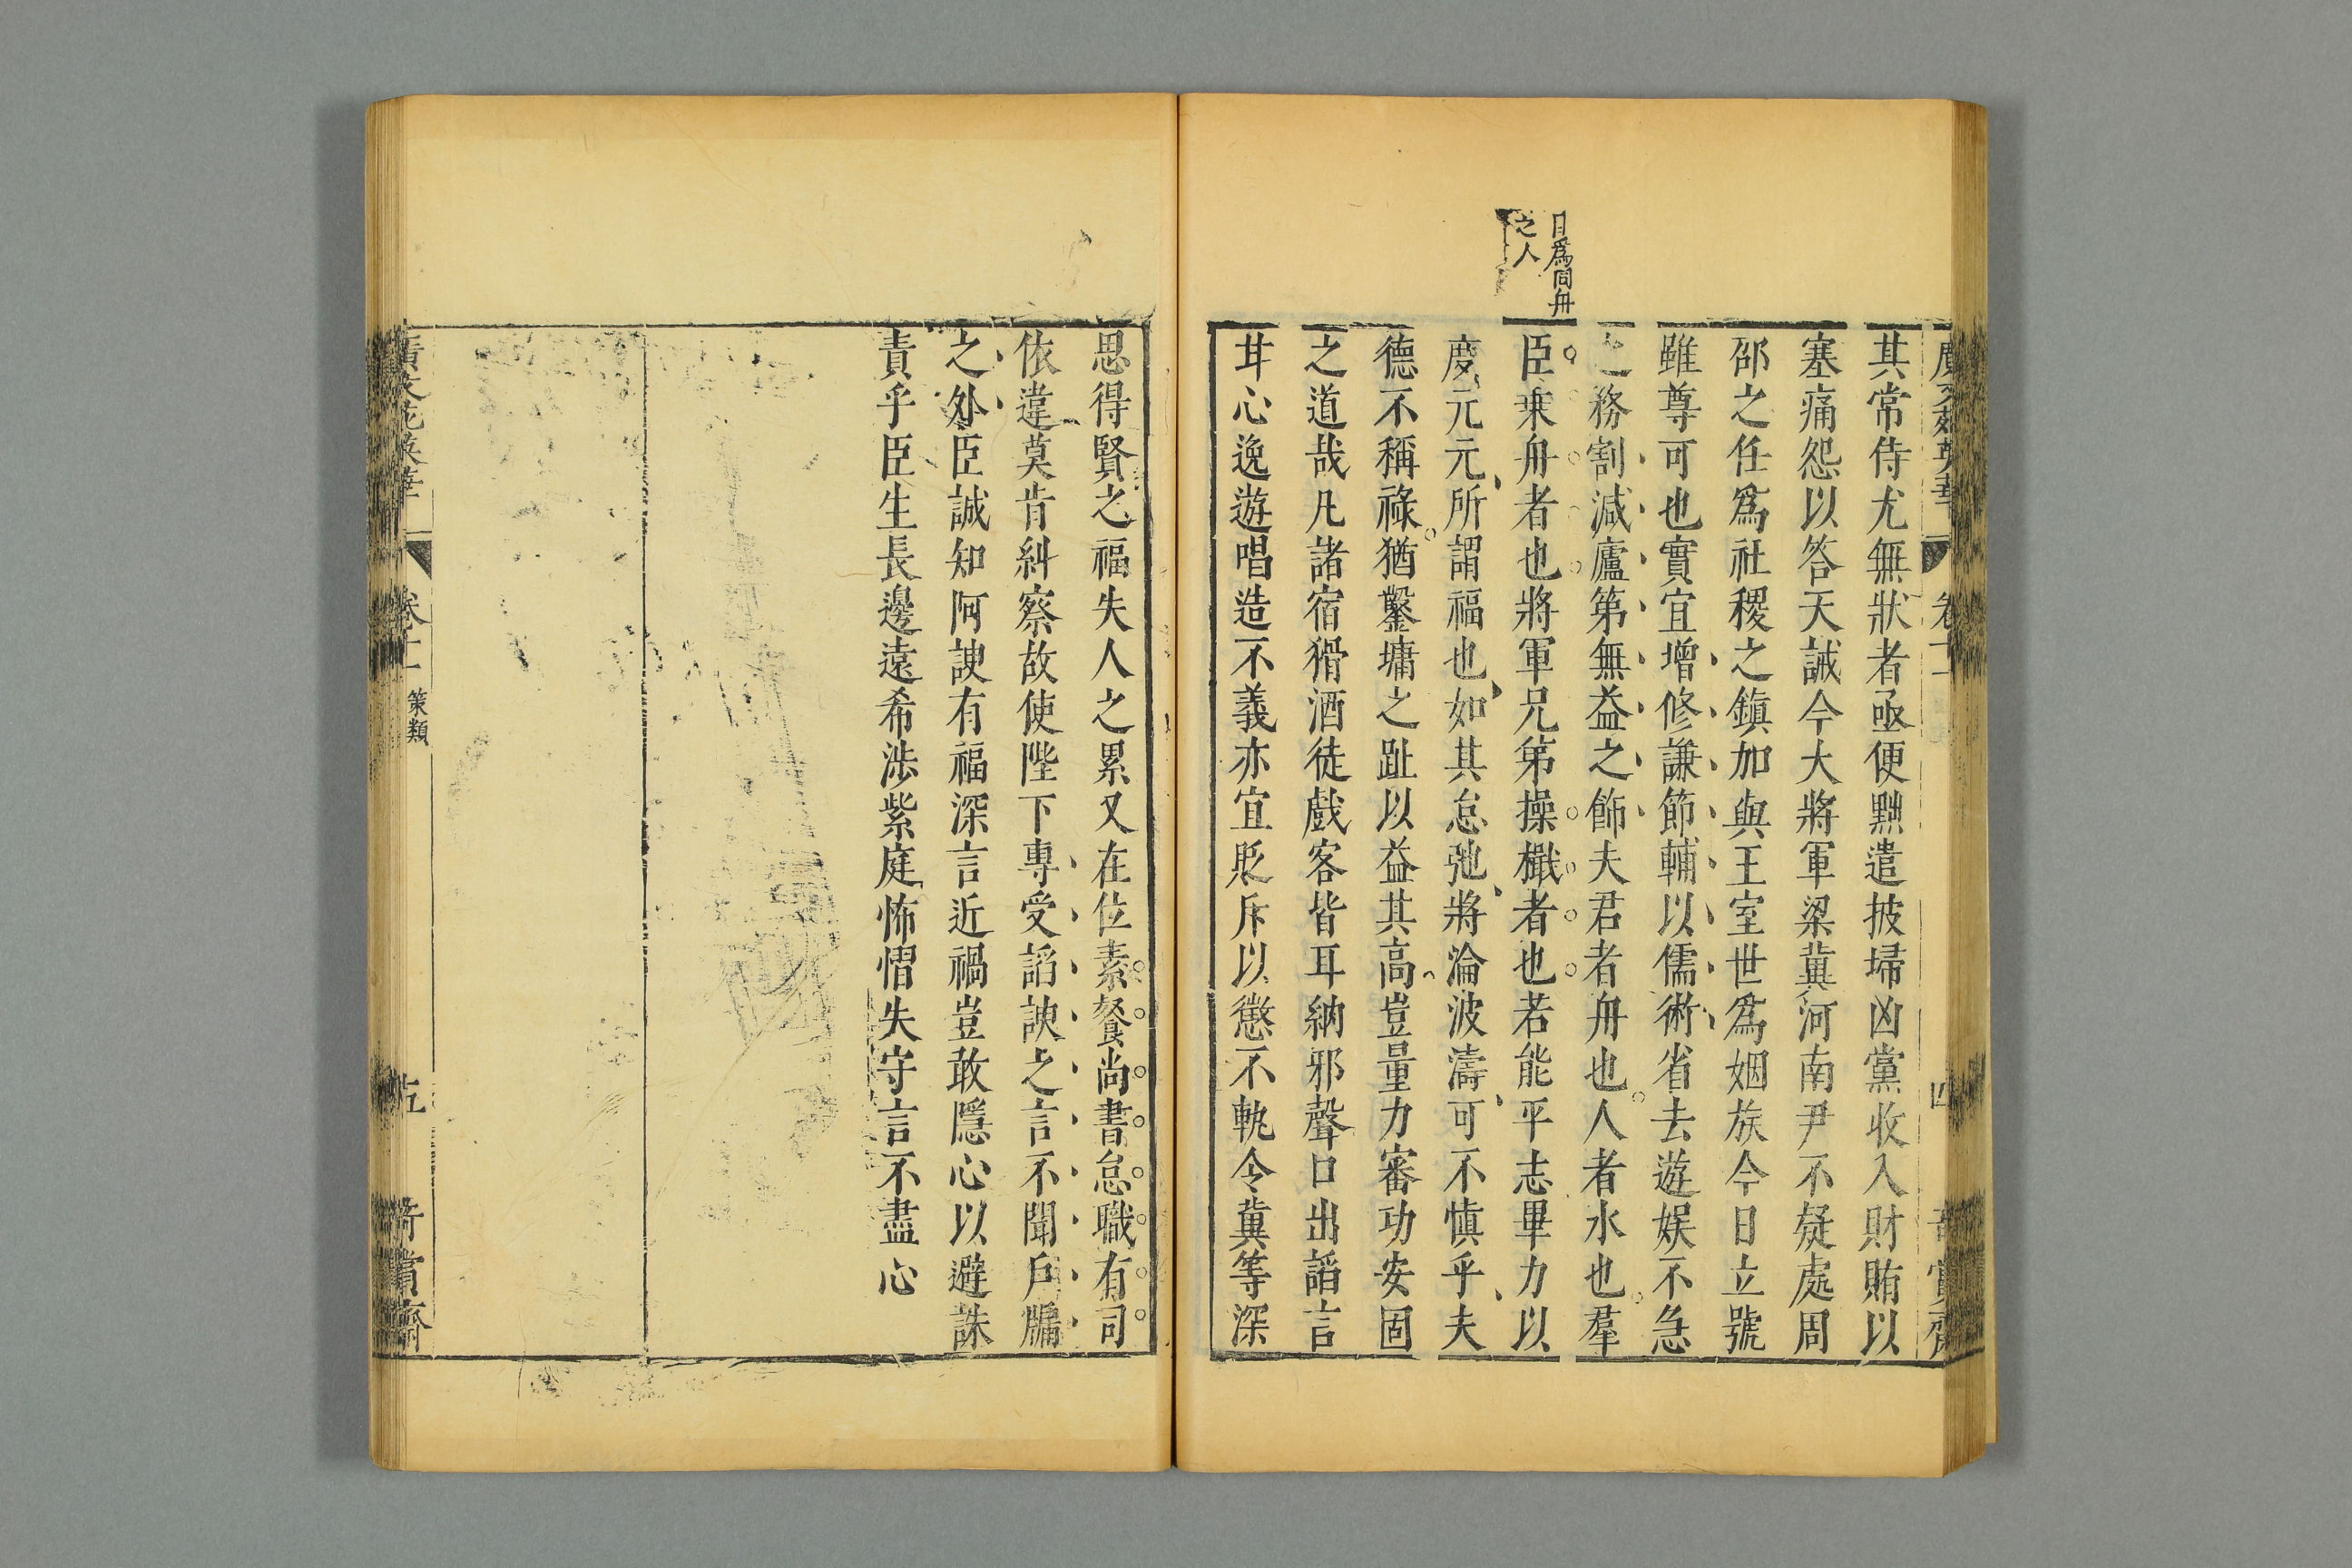 廣文苑英華
卷十一
四
奇賞齋
其常侍尤無狀者亟便黜遣披埽凶黨收入財賄以
塞痛怨以答天誡今大將軍梁冀河南尹不疑處周
邵之任爲社稷之鎭加與王室世爲姻族今日立號
雖尊可也實宜增修謙節輔以儒術省去遊娛不急
之務割減廬第無益之飾夫君者舟也人者水也羣
目爲同舟
之人
臣乗舟者也將軍兄第操檝者也若能平志畢力以
度元元所謂福也如其怠弛將淪波濤可不愼乎夫
德不稱祿猶鑿墉之趾以益其高豈量力審功安固
之道哉凡諸宿猾酒徒戲客皆耳納邪聲口出謟言
甘心逸遊唱造不義亦宜貶斥以懲不軌令冀等深
思得賢之福失人之累又在位素餐尚書怠職有司
依違莫肯糾察故使陛下專受謟諛之言不聞戶牖
之外臣誠知阿諛有福深言近禍豈敢隱心以避誅
責乎臣生長邊遠希涉紫庭怖慴失守言不盡心
廣文苑英華
卷十一
策類
五
奇賞齋